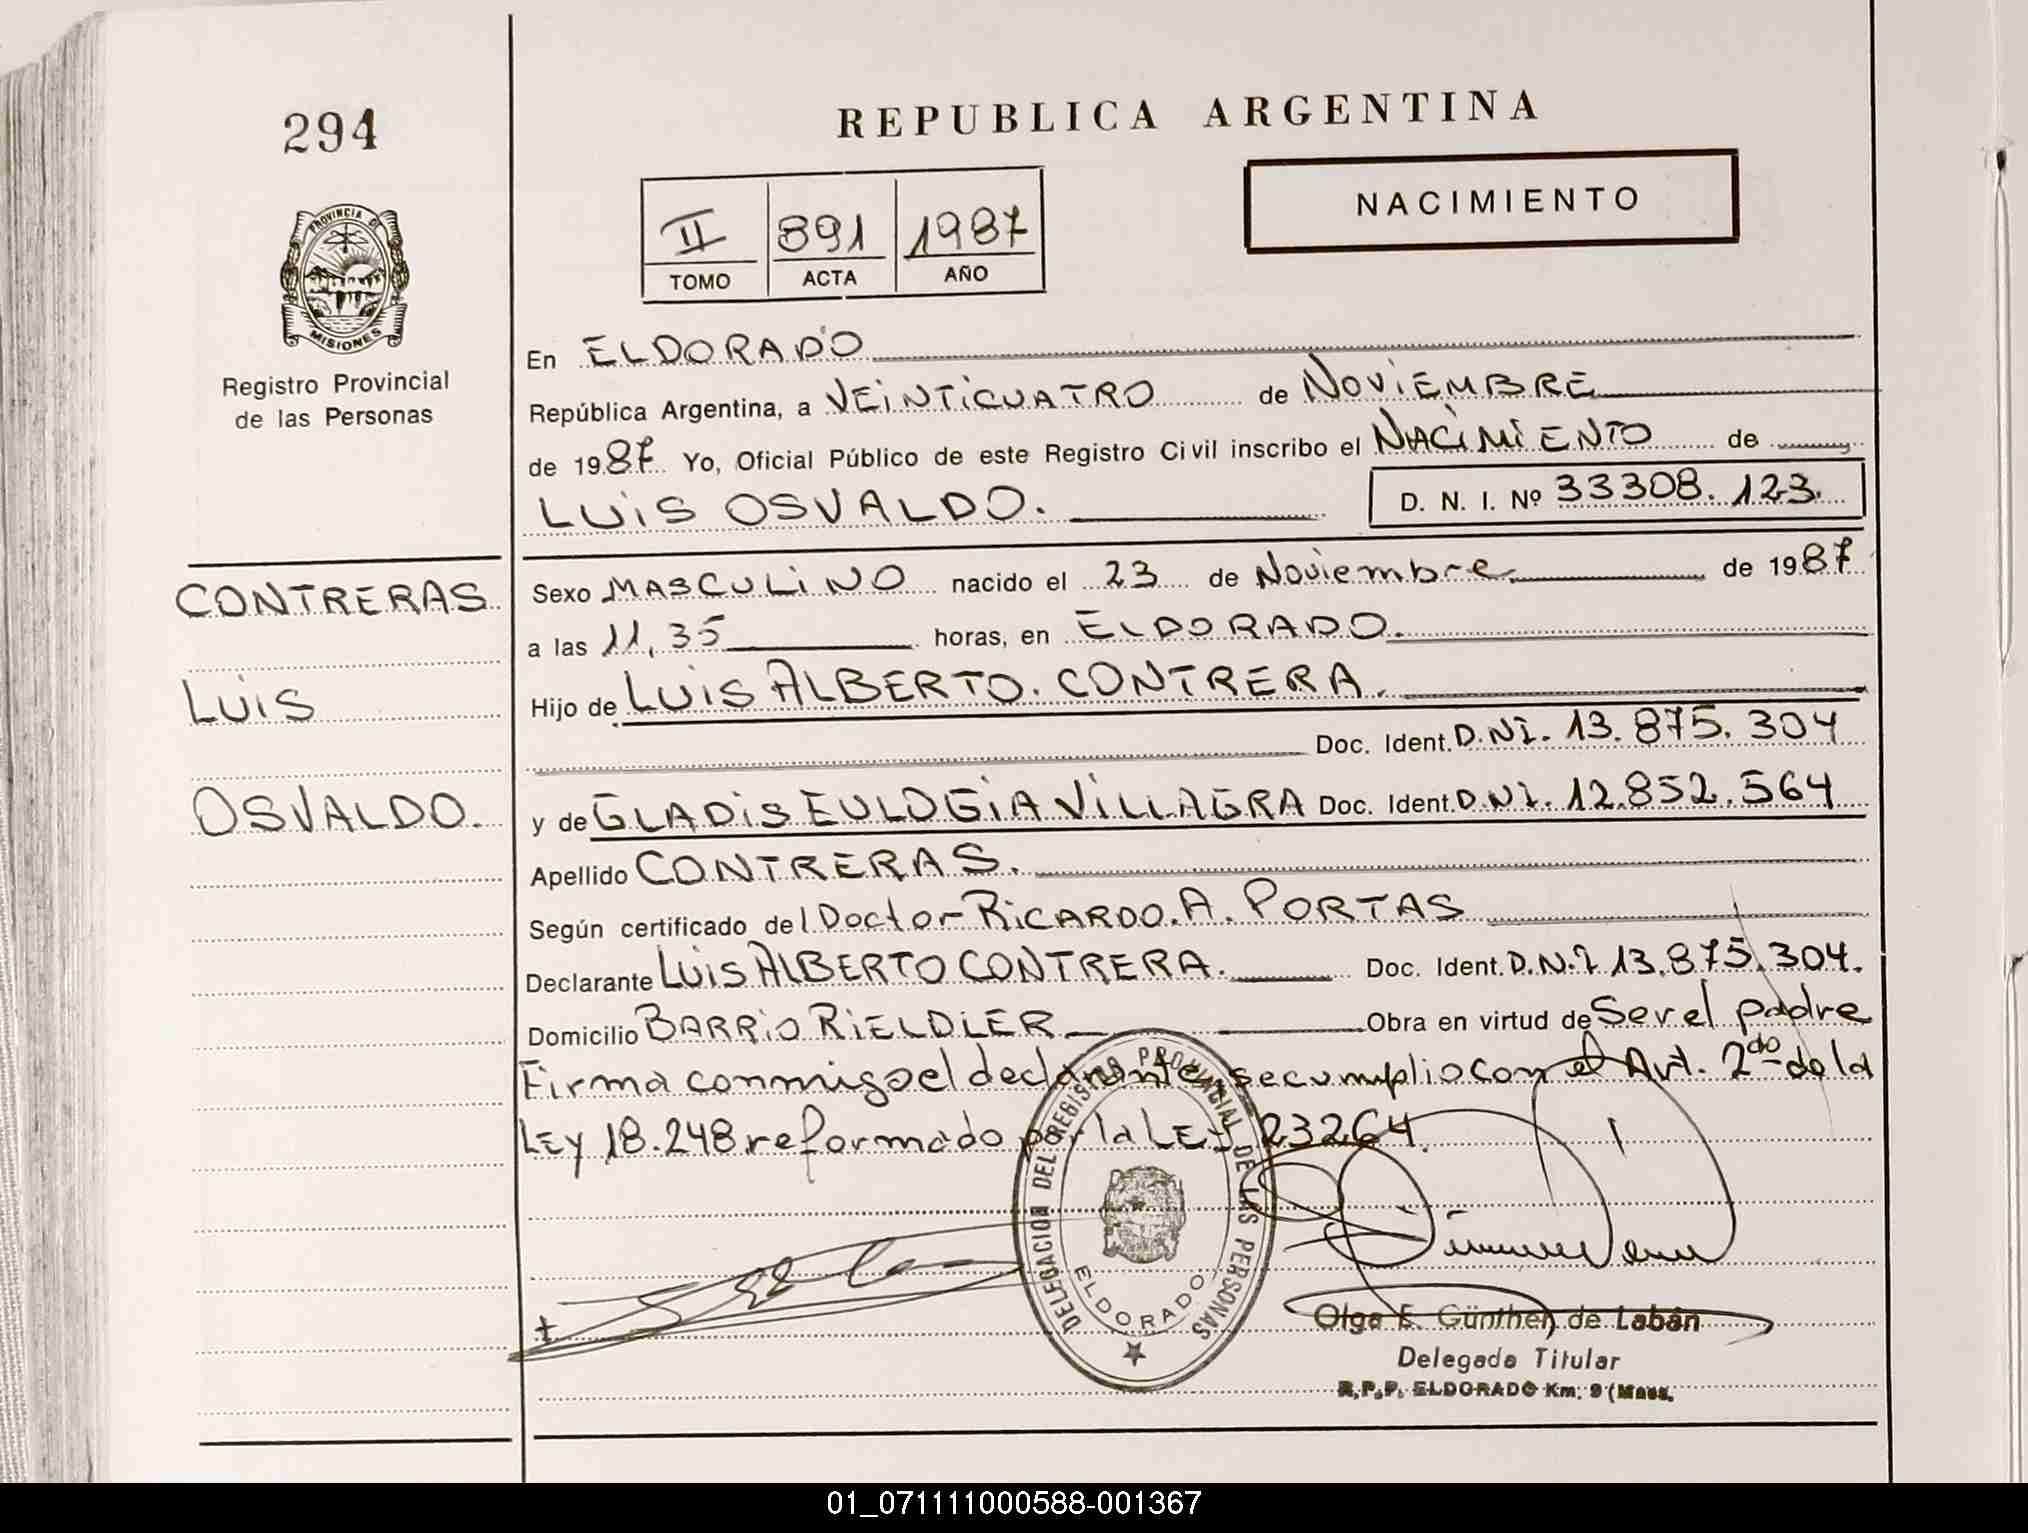 294
REPUBLICA ARGENTINA
NACIMIENTO
II 891 1987
TOMO ACTA AÑO
PROVINCIA DE
MISIONES
Registro Provincial
de las Personas
En ELDORADO
República Argentina, a VEINTICUATRO de NOVIEMBRE
de 1987 Yo, Oficial Público de este Registro Civil inscribo el NACIMIENTO de
LUIS OSVALDO. D. N. I. Nº 33308.123.
CONTRERAS
LUIS
OSVALDO.
Sexo MASCULINO nacido el 23 de Noviembre de 1987
a las 11,35 horas, en ELDORADO.
Hijo de LUIS ALBERTO. CONTRERA.
Doc. Ident. D.NI. 13.875.304
y de GLADIS EULOGIA VILLAGRA Doc. Ident. D.NI. 12.852.564
Apellido CONTRERAS.
Según certificado del Doctor RICARDO.A. PORTAS
Declarante LUIS ALBERTO CONTRERA. Doc. Ident. D.N.I 13.875.304.
Domicilio BARRIO RIELDLER Obra en virtud de Ser el padre
Firma conmigo el declarante, se cumplio con el Art. 2do de la
LEY 18.248 reformado por la LEY 23264.
DELEGACION DEL REGISTRO PROVINCIAL DE LAS PERSONAS
ELDORADO
Olga E. Günther de Labán
Delegada Titular
R.P.P. ELDORADO Km. 9 (Mnes.
01_071111000588-001367